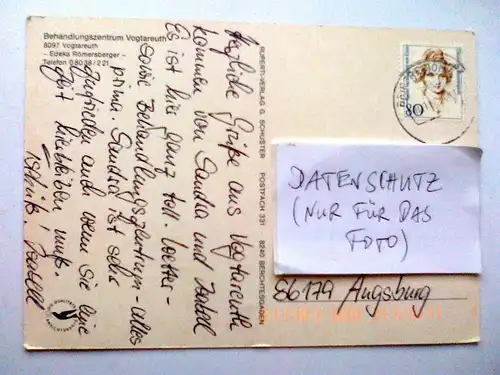 Behandlungszentrum Vogtareuth
8097 Vogtareuth
– Edeka Römersberger –
Telefon 0 80 38 / 2 21
Herzliche Grüße aus Vogtareuth
kommen von Sandra und Isabell
Es ist hier ganz toll. Wetter
sowie Behandlungszentrum - alles
prima. Sandra ist sehr
zufrieden auch wenn sie eine
Zeit hierbleiben muß.
Tschüß, Isabell
RUPERTI-VERLAG G. SCHUSTER POSTFACH 331 8240 BERCHTESGADEN
80
DATENSCHUTZ
(NUR FÜR DAS
FOTO)
86179 Augsburg